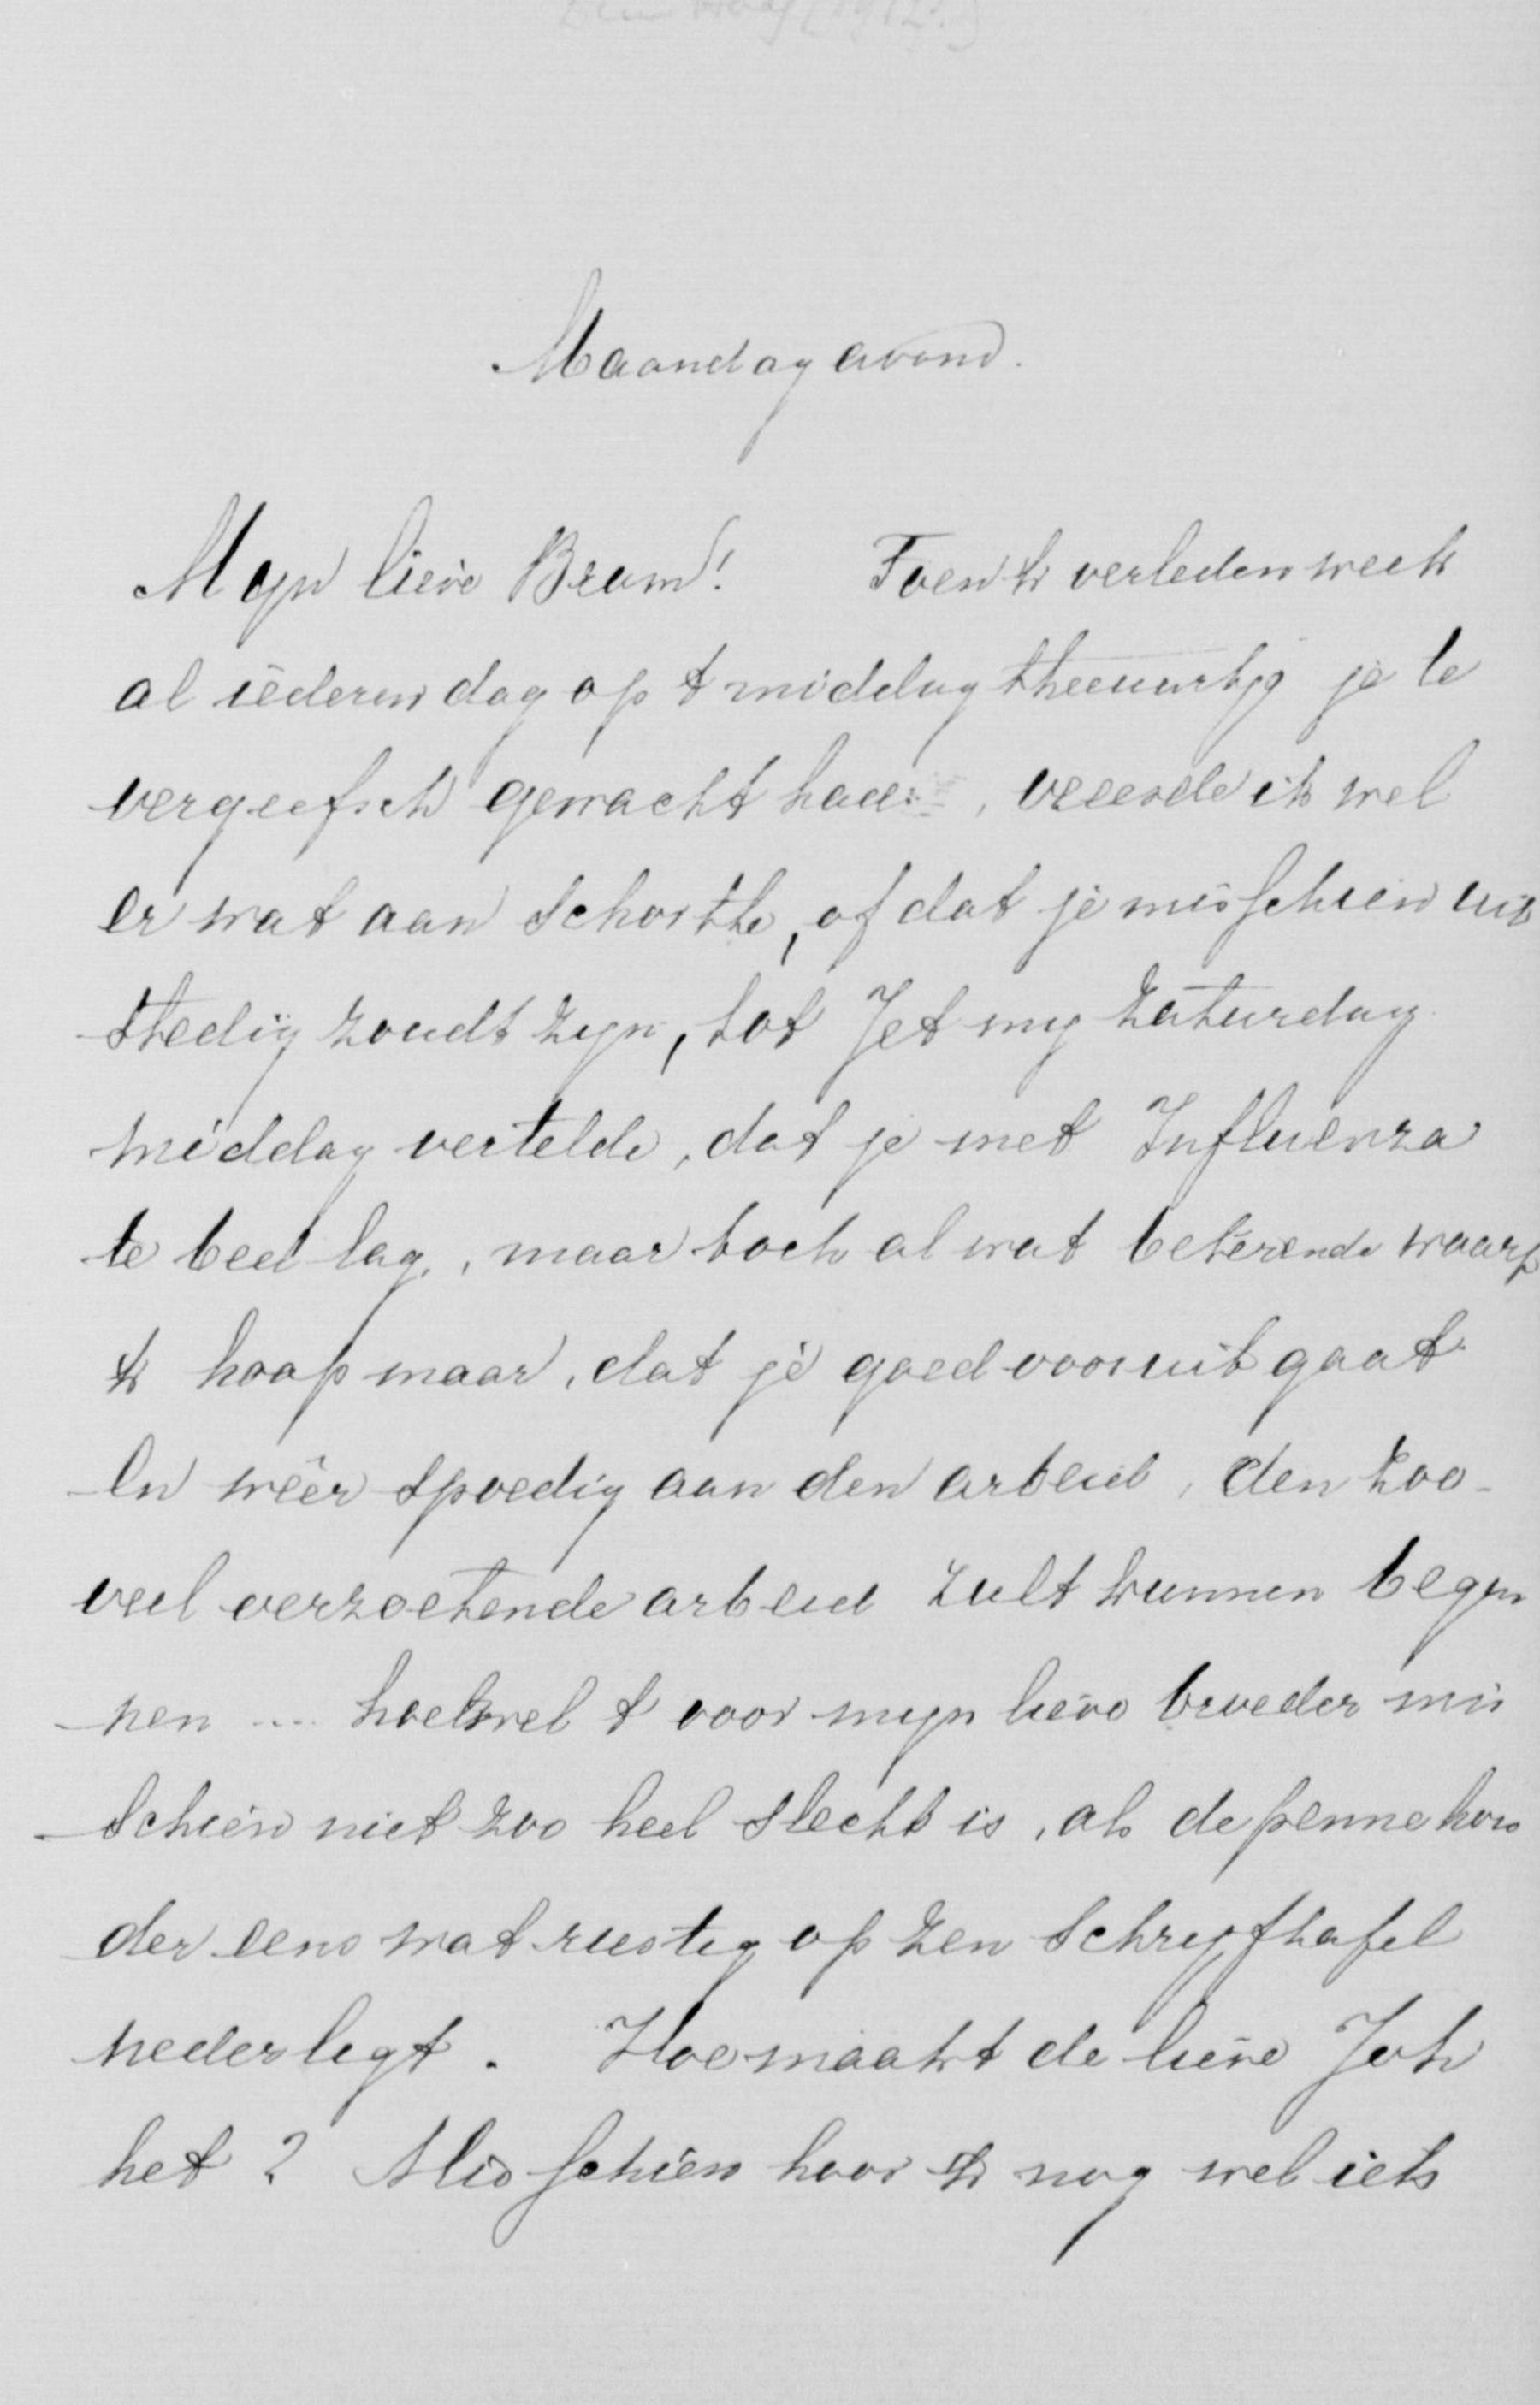 Maandag avond.
Mijn lieve Bram! Toen ik verleden week
al iederen dag op 't middag theeuurtje je te
vergeefsch gewacht had, vreesde ik wel
er wat aan schortte, of dat je misschien uit
stedig zoudt zijn, tot Jet mij Zaturdag
middag vertelde, dat je met Influenza
te bed lag, maar toch al wat beterende waart
Ik hoop maar, dat je goed vooruit gaat
en wêer spoedig aan den arbeid, den zoo-
veel verzoetende arbeid zult kunnen begin
nen ... hoewel 't voor mijn lieve broeder mis
schien niet zoo heel slecht is, als de pennehou
der eens wat rustig op zen schrijftafel
nederligt. Hoe maakt de lieve Joh
het? Misschien hoor ik nog wel iets